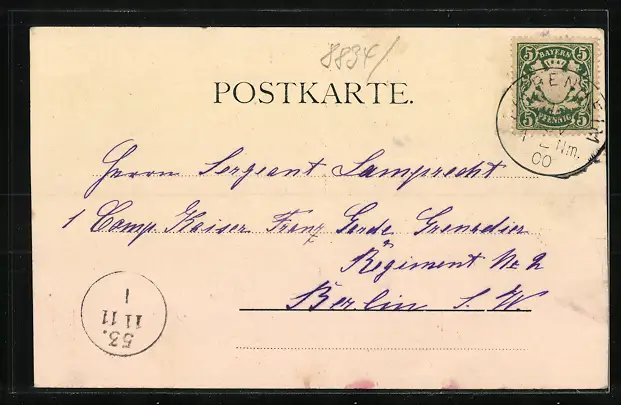 8834/
5 BAYERN 5
5 PFENNIG 5
2 Nm.
00
POSTKARTE.
Herrn Sergeant Lamprecht
1 Comp. Kaiser Franz Garde Grenadier
Regiment Nr 2
Berlin S. W.
53.
11 11
1